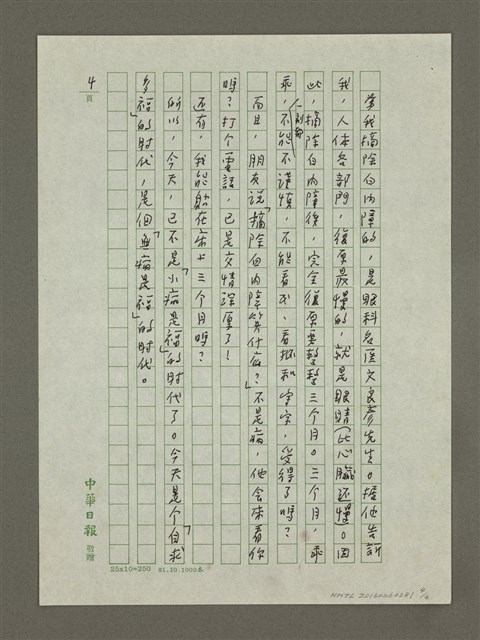 替我摘除白內障的，是眼科名医文良彥先生。据他告訴
我，人体各部門，復原最慢的，就是眼睛（比心臟还慢）。因
此，摘除白內障後，完全復原要整整三个月。三个月，乖
乖，不能不謹慎，不能看書、看报和字字，受得了嗎？
而且，朋友説「摘除白內障算什麼？」不是病，他会來看你
嗎？打个電話，已是交情深厚了！
还有，我能躺在床上三个月嗎？
所以，今天，已不是「小病是福」的时代了。今天是个「自求
多福」的时代，是個「無病是福」的时代。
4頁
中華日報 敬贈
25x10=250 81.10.1000本
NMTL 20160260281